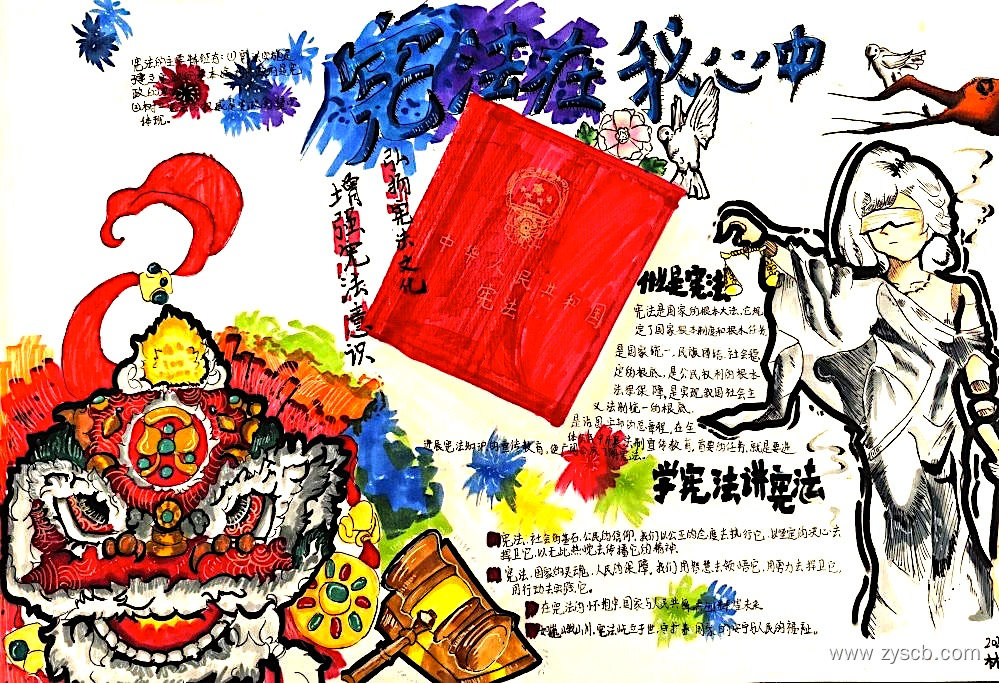 宪法在我心中
宪法的主要特征有:(1)
体现。
弘扬宪法文化
增强宪法意识
中华人民共和国
宪法
什么是宪法
宪法是国家的根本大法,它规
定了国家根本制度和根本任务
是国家统一,民族团结,社会稳
定的根底,是公民权利的根本
法律保障,是实现我国社会主
义法制统一的根底。
是治国安邦的总章程,在全
进展宪法知识的宣传教育,
制宣传教育,首要的任务,就是要进
学宪法讲宪法
宪法,社会的基石,公民的信仰,我们以公正的态度去执行它,以坚定的决心去
捍卫它,以无比热忱去传播它的精神
宪法,国家的灵魂,人民的保障,我们用智慧去领悟它,用勇力去捍卫它,
用行动去实践它。
在宪法的怀抱里,国家与人民共
巍峨山川,宪法屹立于世,守护着国家的安宁与人民的福祉。
202
林
www.zyscb.com